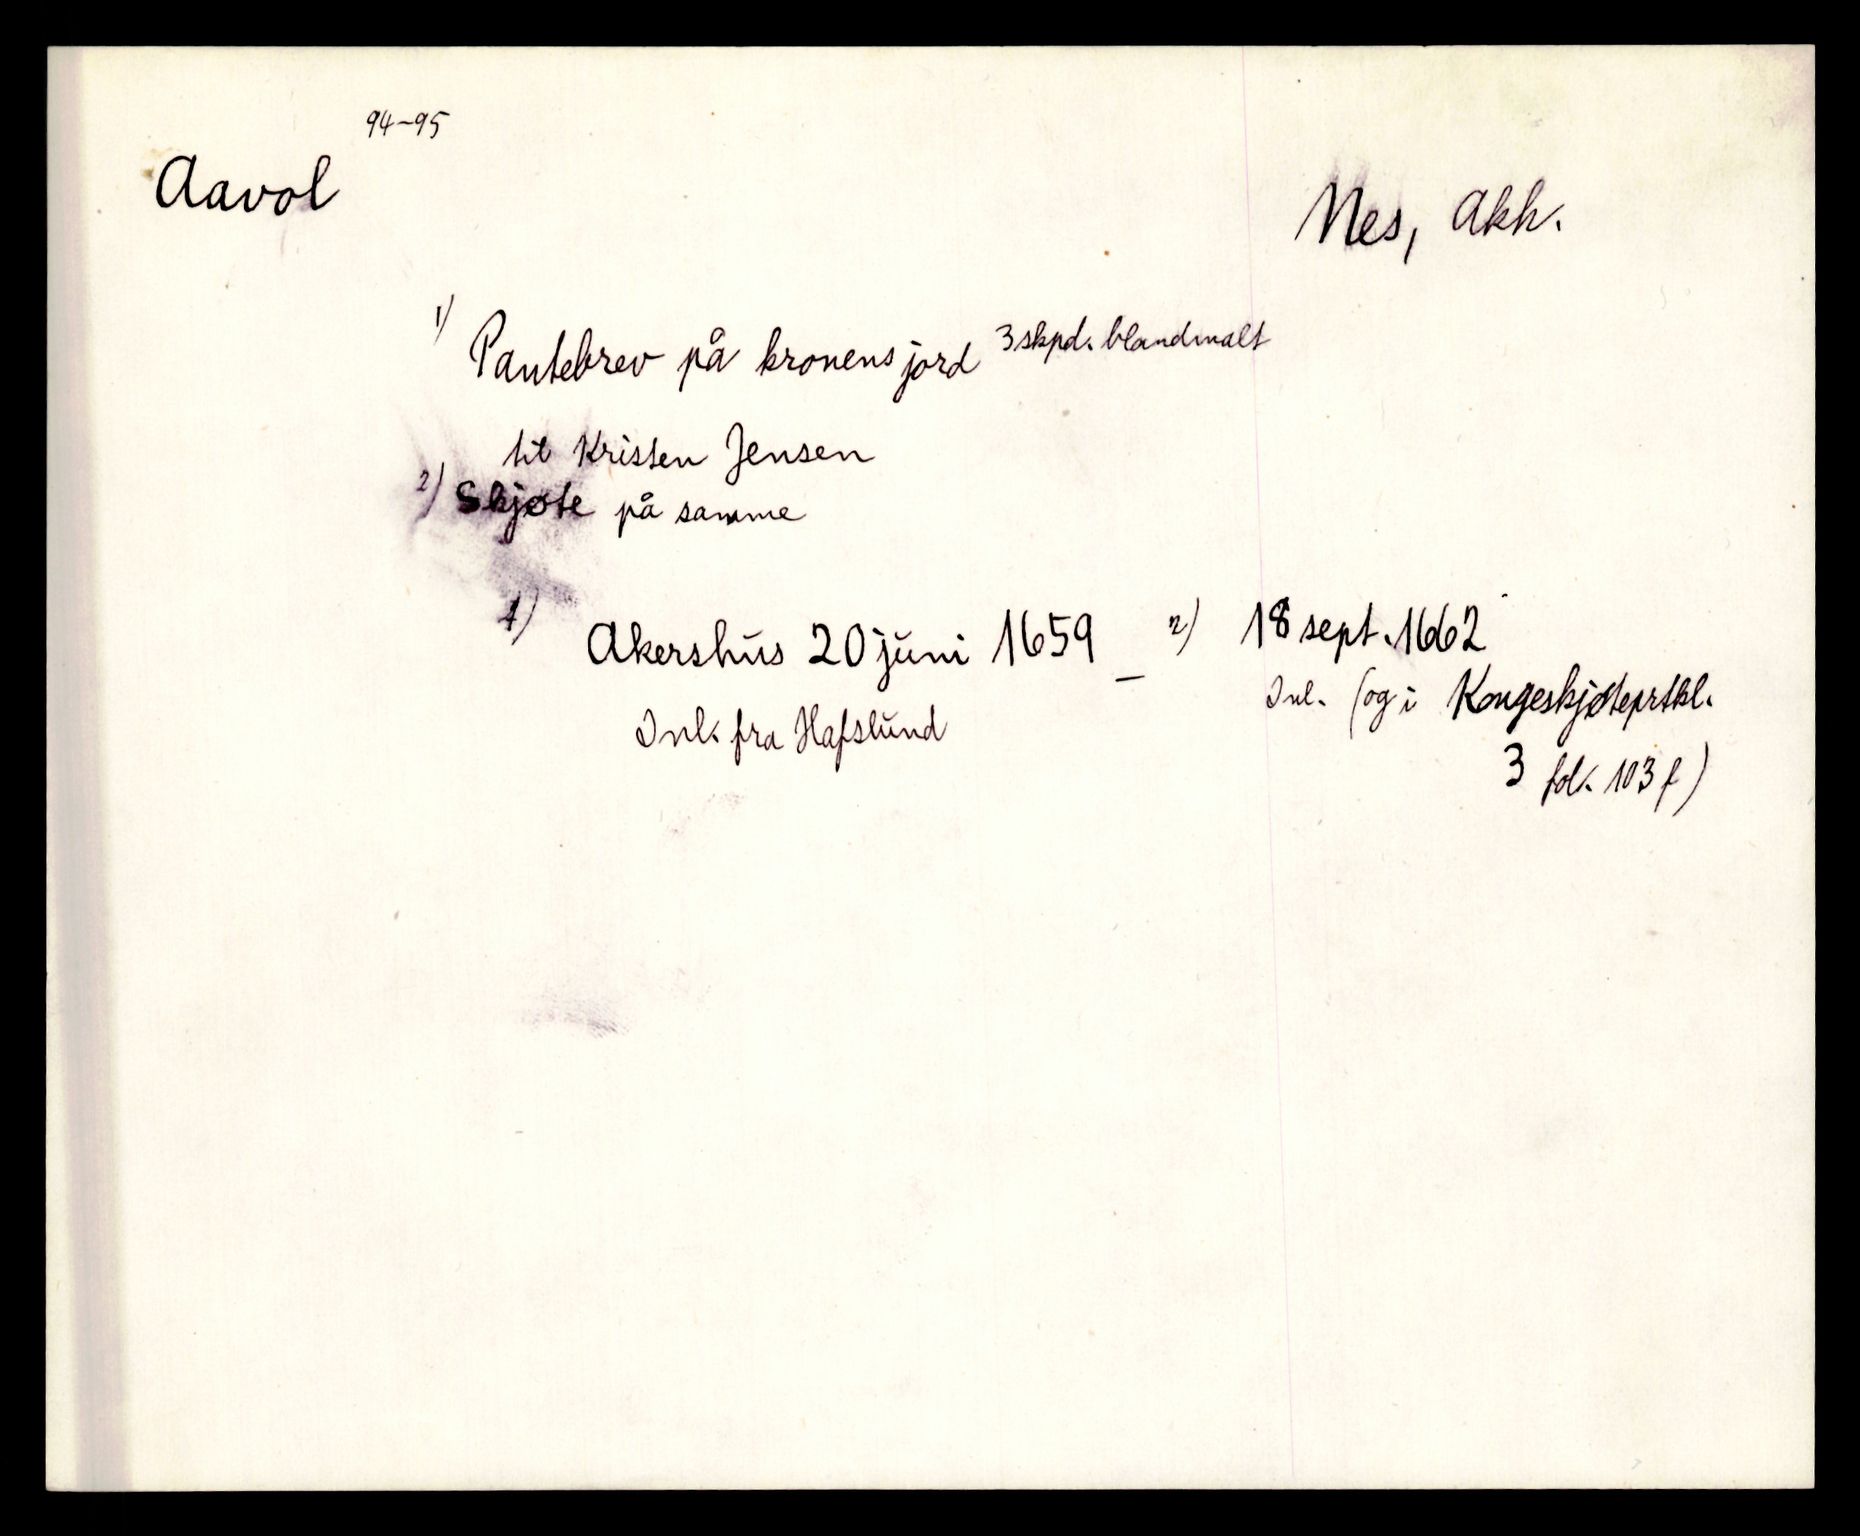 94-95
Aavol
Nes, Akh.
1) Pantebrev på kronens jord 3 skpd. blandmalt
til Kristen Jensen
2) Skjøte på samme
1) Akershus 20 juni 1659 – 2) 18 sept. 1662
Inl. fra Hafslund
Inl. (og i Kongeskjøteprtkl.
3 fol. 103 f)